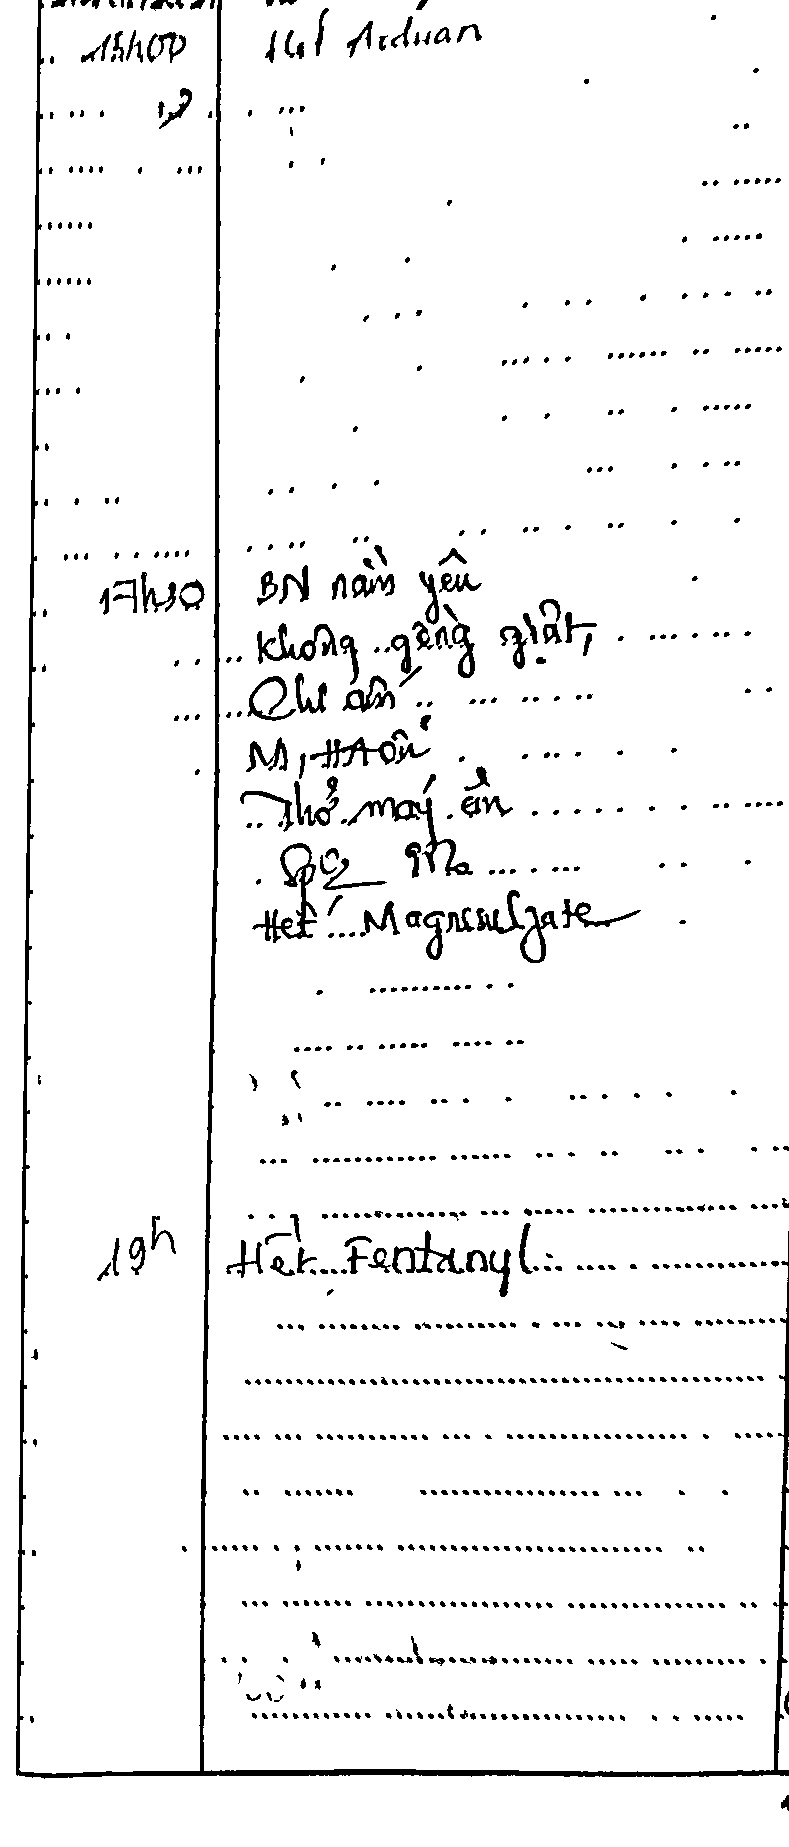 15h00 Hết Arduan
17h30 BN nằm yên
không gồng giật,
Chi ấm
M, HA ổn
Thở máy êm
SpO2 91%
Hết Magnesulfate
19h Hết Fentanyl